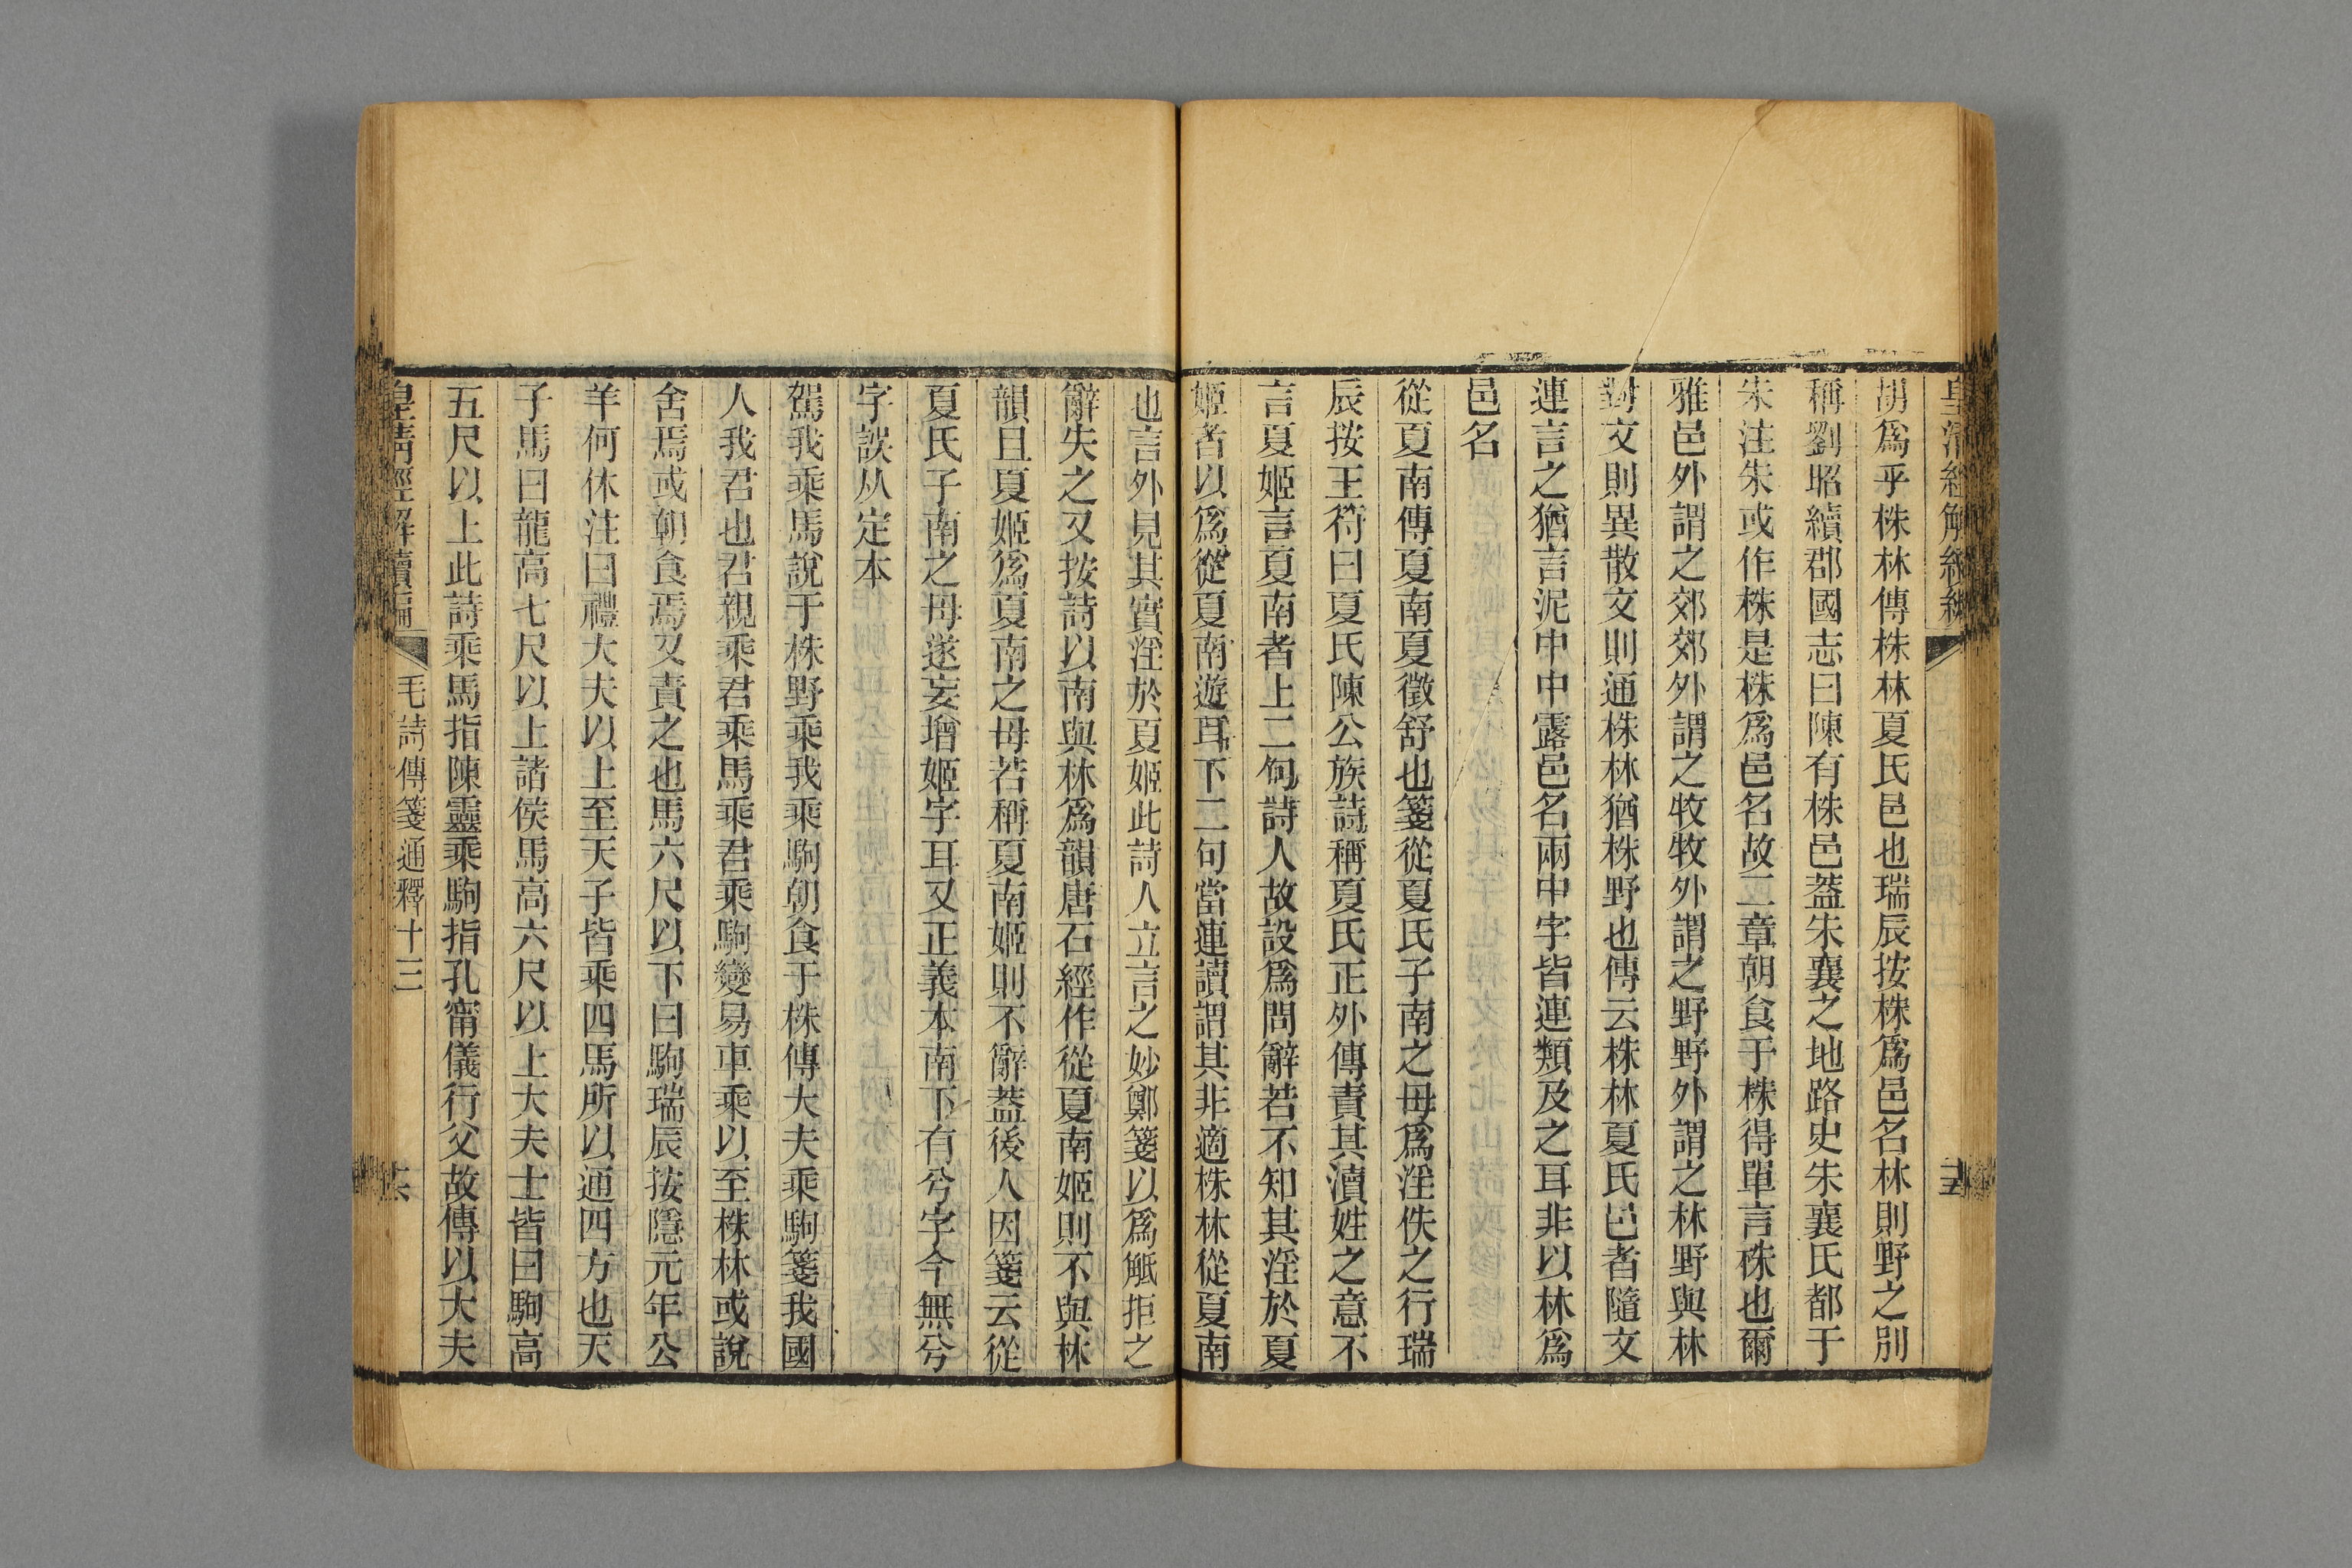 皇清經解續編
胡爲乎株林傳株林夏氏邑也瑞辰按株爲邑名林則野之別
稱劉昭續郡國志曰陳有株邑葢朱襄之地路史朱襄氏都于
朱注朱或作株是株爲邑名故二章朝食于株得單言株也爾
雅邑外謂之郊郊外謂之牧牧外謂之野野外謂之林野與林
對文則異散文則通株林猶株野也傳云株林夏氏邑者隨文
連言之猶言泥中中露邑名兩中字皆連類及之耳非以林爲
邑名
從夏南傳夏南夏徵舒也箋從夏氏子南之母爲淫佚之行瑞
辰按王符曰夏氏陳公族詩稱夏氏正外傳責其瀆姓之意不
言夏姬言夏南者上二句詩人故設爲問辭若不知其淫於夏
姬者以爲從夏南遊耳下二句當連讀謂其非適株林從夏南
也言外見其實淫於夏姬此詩人立言之妙鄭箋以爲觝拒之
辭失之又按詩以南與林爲韻唐石經作從夏南姬則不與林
韻且夏姬爲夏南之母若稱夏南姬則不辭葢後人因箋云從
夏氏子南之母遂妄增姬字耳又正義本南下有兮字今無兮
字誤从定本
駕我乘馬說于株野乘我乘駒朝食于株傳大夫乘駒箋我國
人我君也君親乘君乘馬乘君乘駒變易車乘以至株林或說
舍焉或朝食焉又責之也馬六尺以下曰駒瑞辰按隱元年公
羊何休注曰禮大夫以上至天子皆乘四馬所以通四方也天
子馬曰龍高七尺以上諸侯馬高六尺以上大夫士皆曰駒高
五尺以上此詩乘馬指陳靈乘駒指孔甯儀行父故傳以大夫
皇清經解續編 毛詩傳箋通釋十三